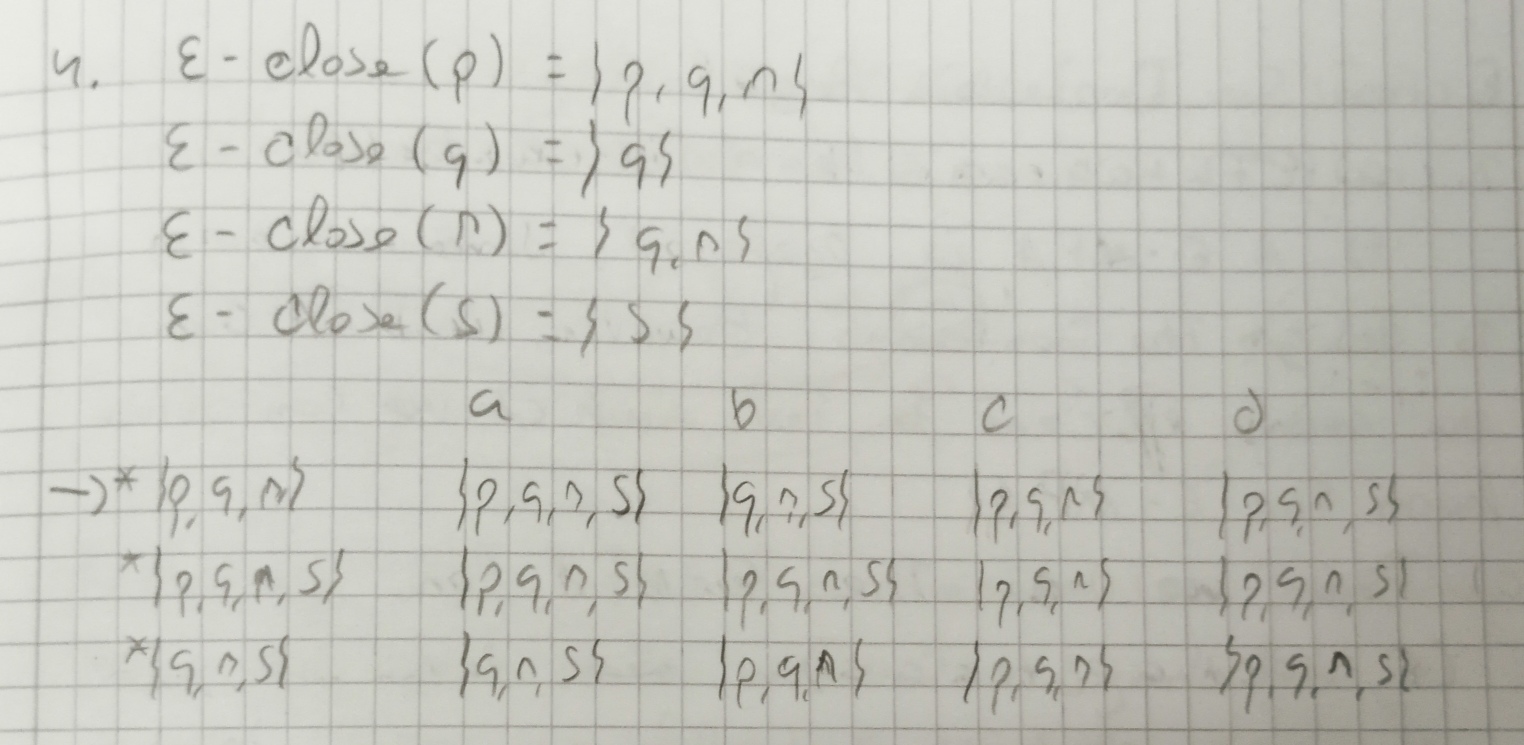 4. ε - close (p) = {p, q, r}
ε - close (q) = {q}
ε - close (r) = {q, r}
ε - close (s) = {s}
a b c d
→* {p, q, r} {p, q, r, s} {q, r, s} {p, q, r} {p, q, r, s}
* {p, q, r, s} {p, q, r, s} {p, q, r, s} {p, q, r} {p, q, r, s}
* {q, r, s} {q, r, s} {p, q, r} {p, q, r} {p, q, r, s}